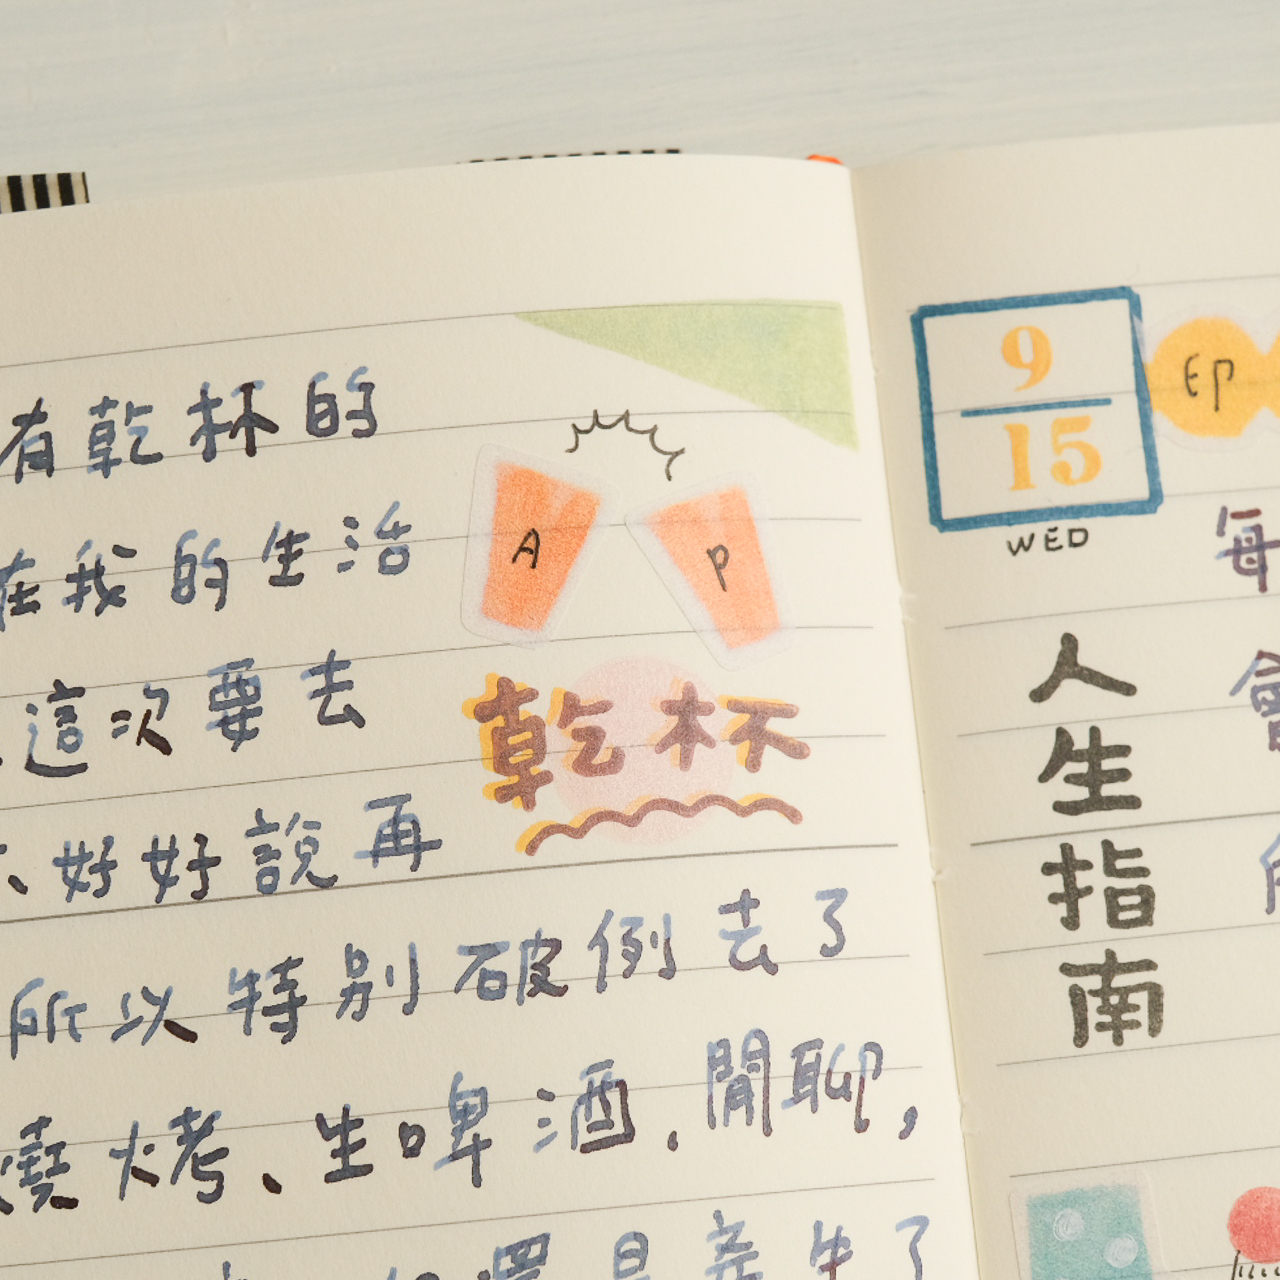 有乾杯的
在我的生活
這次要去
、好好說再
所以特別破例去了
燒烤、生啤酒、閒聊，
還是產生了
A
P
乾杯
9
15
WED
印
每
會
人生指南